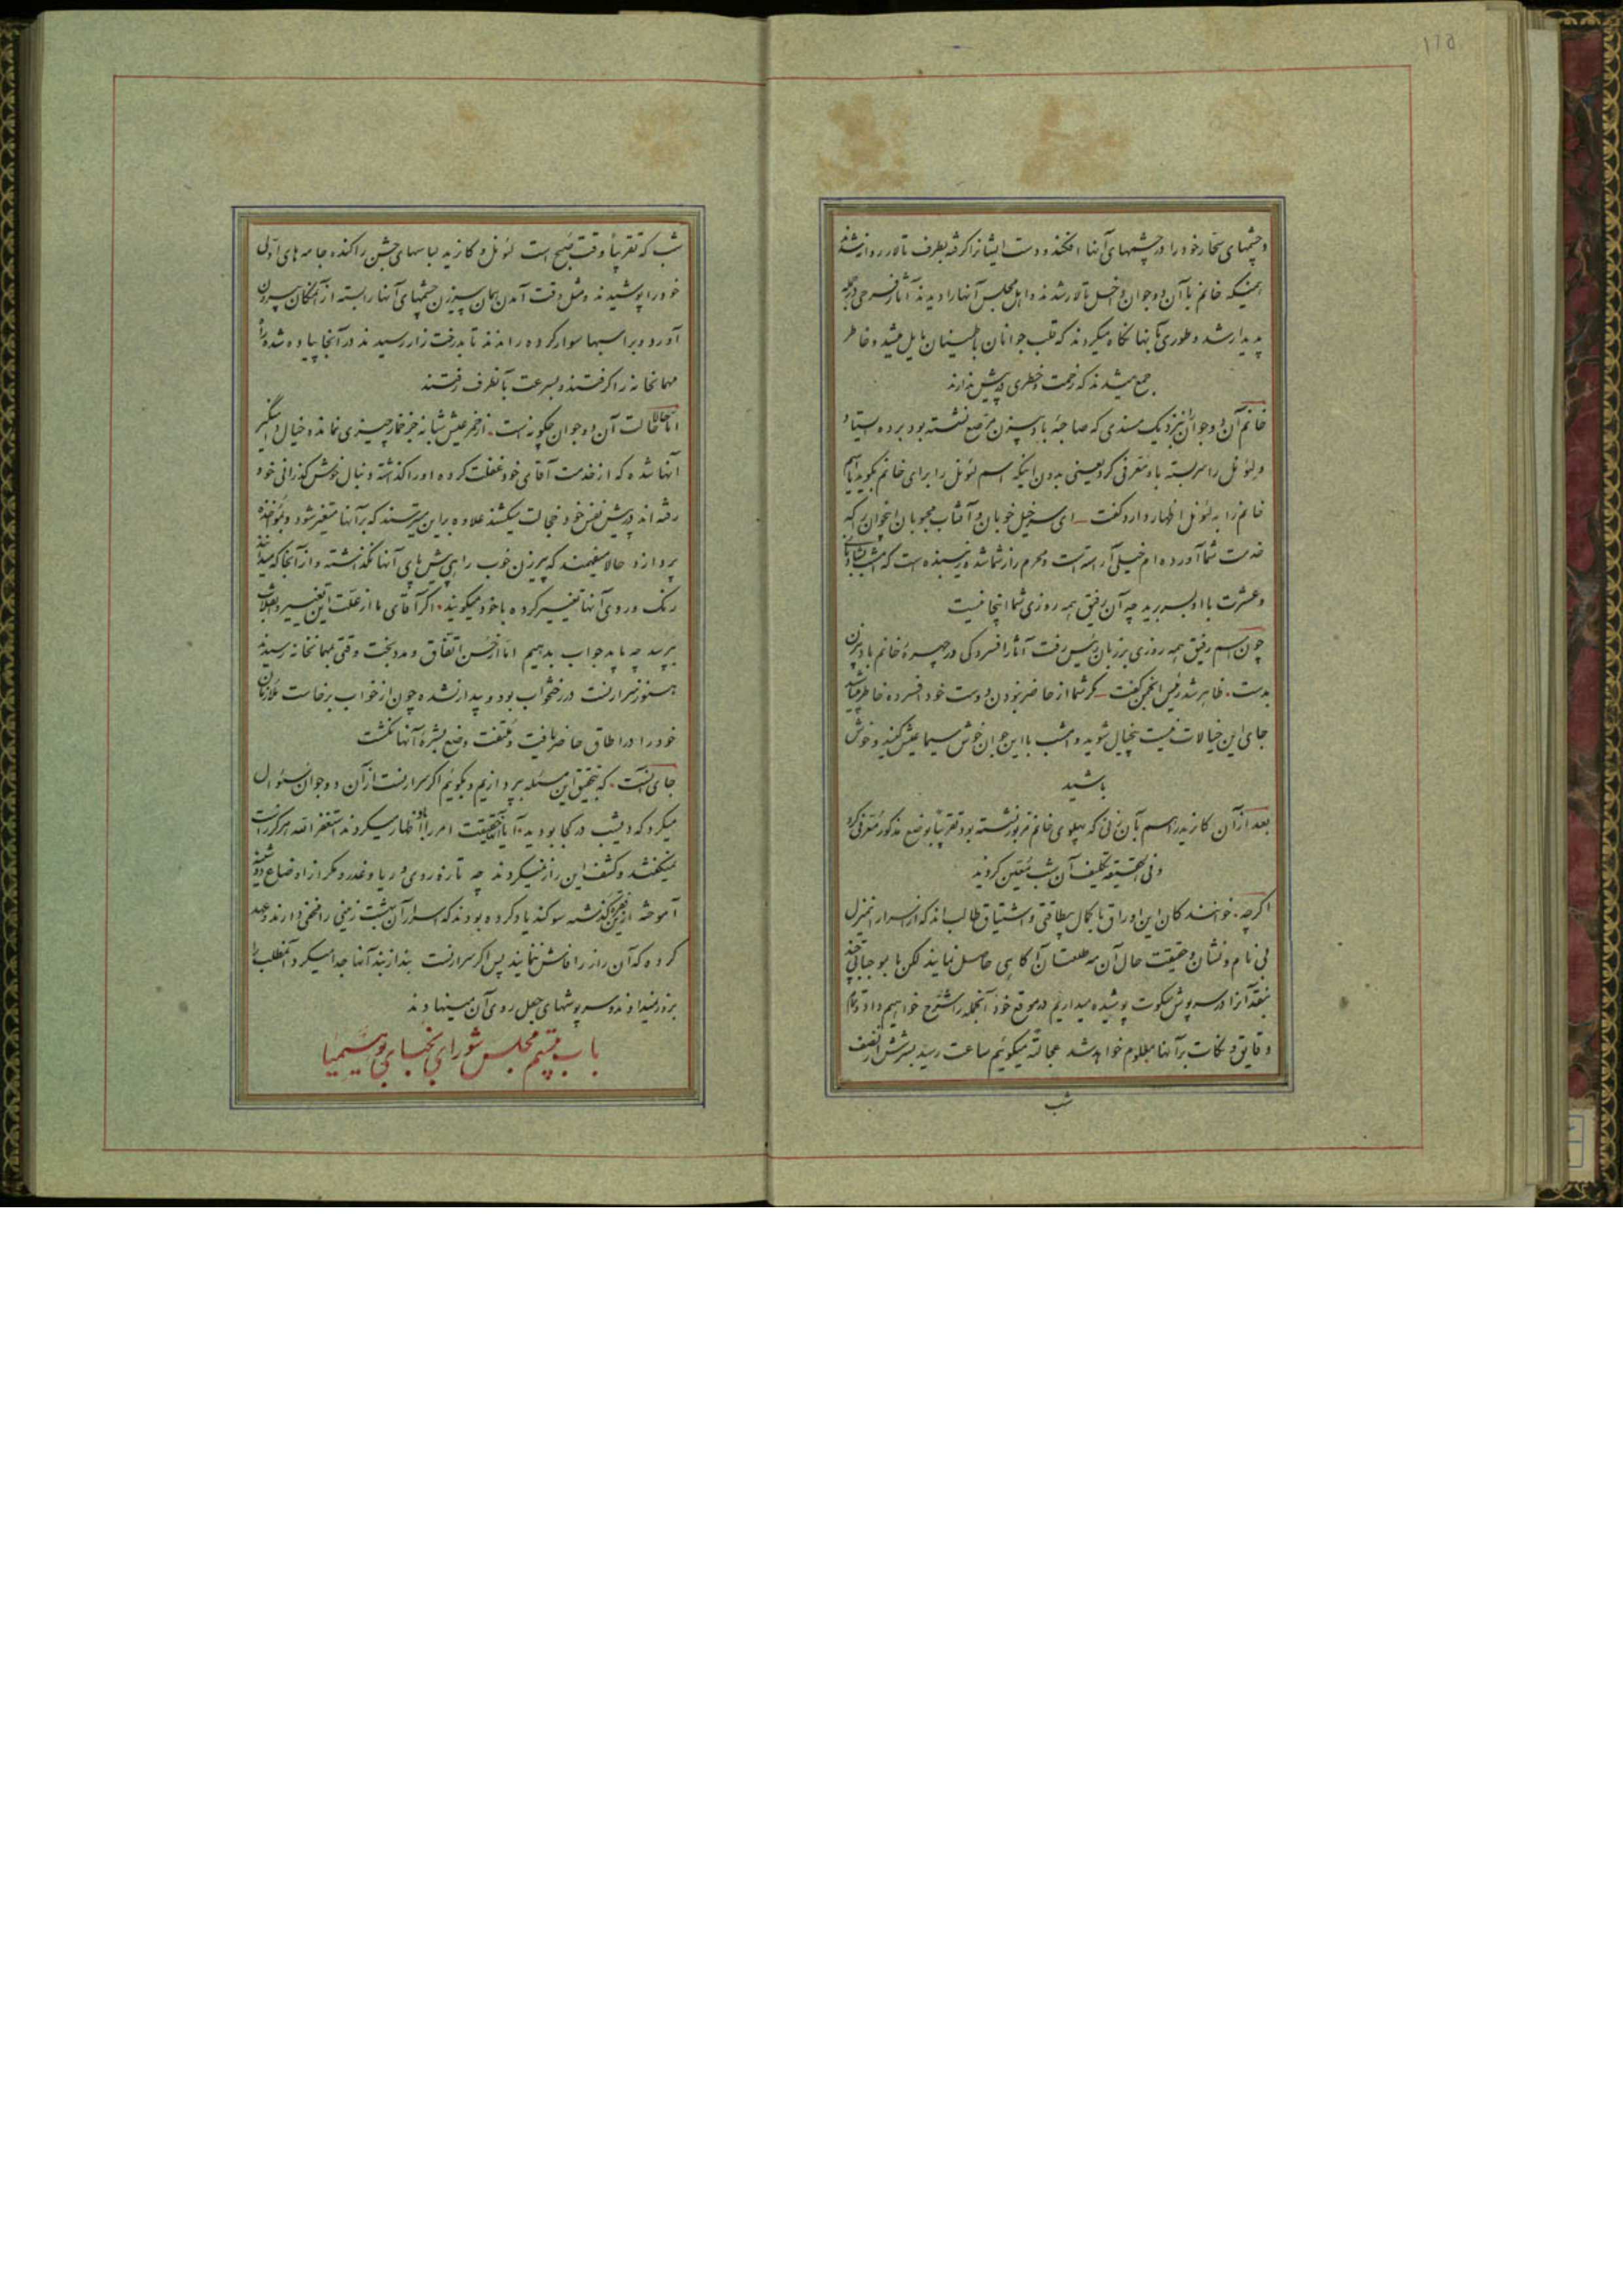 و چشمهای سحّار خود را در چشمهای آنها افکند و دست ایشانرا گرفته بطرف تالار روانه شدند
همینکه خانم با آن دو جوان داخل تالار شدند و اهل مجلس آنها را دیدند آثار فرحی در جمله
پدیدار شد و طوری بآنها نگاه میکردند که قلب جوانان باطمینان مایل میشد و خاطر
جمع میشدند که زحمت و خطری در پیش ندارند
خانم آن دو جوان را نزدیک مسندی که صاحبه بادبیزن مرصّع نشسته بود برده ایستاد
و لئونل را سربسته باو معرّفی کرد یعنی بدون اینکه اسم لئونل را برای خانم بگوید یا اسم
خانم را به لئونل اظهار دارد گفت ـ ای سرخیل خوبان و آفتاب محبوبان این جوان را که
خدمت شما آورده ام خیلی آراسته است و محرم راز شما شده پسندیده است که امشب را
و عشرت با او بسر برید چه آن رفیق همه روزی شما اینجا نیست
چون اسم رفیق همه روزی بر زبان رئیس رفت آثار افسردگی در چهرهٔ خانم بادبیزن
بدست ظاهر شد رئیس انجمن گفت ـ گر شما از حاضر نبودن دوست خود افسرده خاطر میباشید
جای این خیالات نیست بیخیال شوید و امشب با این جوان خوش سیما عیش کنید و خوش
باشید
بعد از آن کازید را هم بآن زنی که پهلوی خانم مزبور نشسته بود تقریباً بوضع مذکور معرّفی کرد
و فی الحقیقه تکلیف آن شب معیّن گردید
اگرچه خوانندکان این اوراق با کمال بیطاقتی و اشتیاق طالب اند که از اسرار این منزل
بی نام و نشان و حقیقت حال آن مه طلعتان آگاهی حاصل نمایند لکن ما بموجباتی چند
عقد آنرا در سرپوش سکوت پوشیده میداریم در موقع خود آنجمله را شرح خواهیم داد و تمام
دقایق و نکات بر آنها معلوم خواهد شد عجالتة میگوئیم ساعت رسید بسه نصف
شب
شب که تقریباً وقت صبح است لئونل و کازید لباسهای جشن را کنده جامه های اوّلی
خود را پوشیدند و مثل وقت آمدن همان پیرزن چشمهای آنها را بسته از آن مکان بیرون
آورد و بر اسبها سوار کرده راندند تا بدرخت زار رسیدند در آنجا پیاده شده راه
مهمانخانه را گرفتند و بسرعت بآنطرف رفتند
امّا حالا حالت آن دو جوان چگونه است. از خمر عیش شبانه جز خمار چیزی نمانده خیال دامنگیر
آنها شده که از خدمت آقای خود غفلت کرده او را گذاشته دنبال خوش گذرانی خود
رفته اند در پیش نفس خود خجالت میکشند علاوه بر این میترسند که بر آنها متغیر شود و بمؤاخذه
پردازد حالا میفهمند که پیرزن خوب راهی پیش پای آنها نگذاشته و از آنجا که میدانند
رنگ و روی آنها تغییر کرده با خود میگویند. اگر آقای ما از علّت این تغییر و انقلاب
بپرسد چه باید جواب بدهیم امّا از حسن اتفاق و مدد بخت وقتی بمهمانخانه رسیدند
هنوز سرارنست در رختخواب بود و بیدار نشده چون از خواب برخاست ملازمان
خود را در اطاق حاضر یافت و ملتفت وضع بشرهٔ آنها نگشت
جای آنست. که بتحقیق این مسئله بپردازیم و بگوئیم اگر سرارنست از آن دو جوان سئوال
میکرد که دیشب در کجا بودید آیا حقیقت امر را باو اظهار میکردند استغفر الله هرگز راست
نمیگفتند و کشف این راز نمیکردند چه تازه روی و ریا و غدر و مکر از اوضاع دوشینه
آموخته از این گذشته سوگند یاد کرده بودند که اسرار آن بهشت زمینی را مخفی دارند و عهد
کرده که آن راز را فاش ننمایند پس اگر سرارنست بند از بند آنها جدا میکرد آنمطلب را
بروز نمیدادند و سرپوشهای جعل روی آن مینهادند
باب بیستم مجلس شورای نجبای بوهیمیا